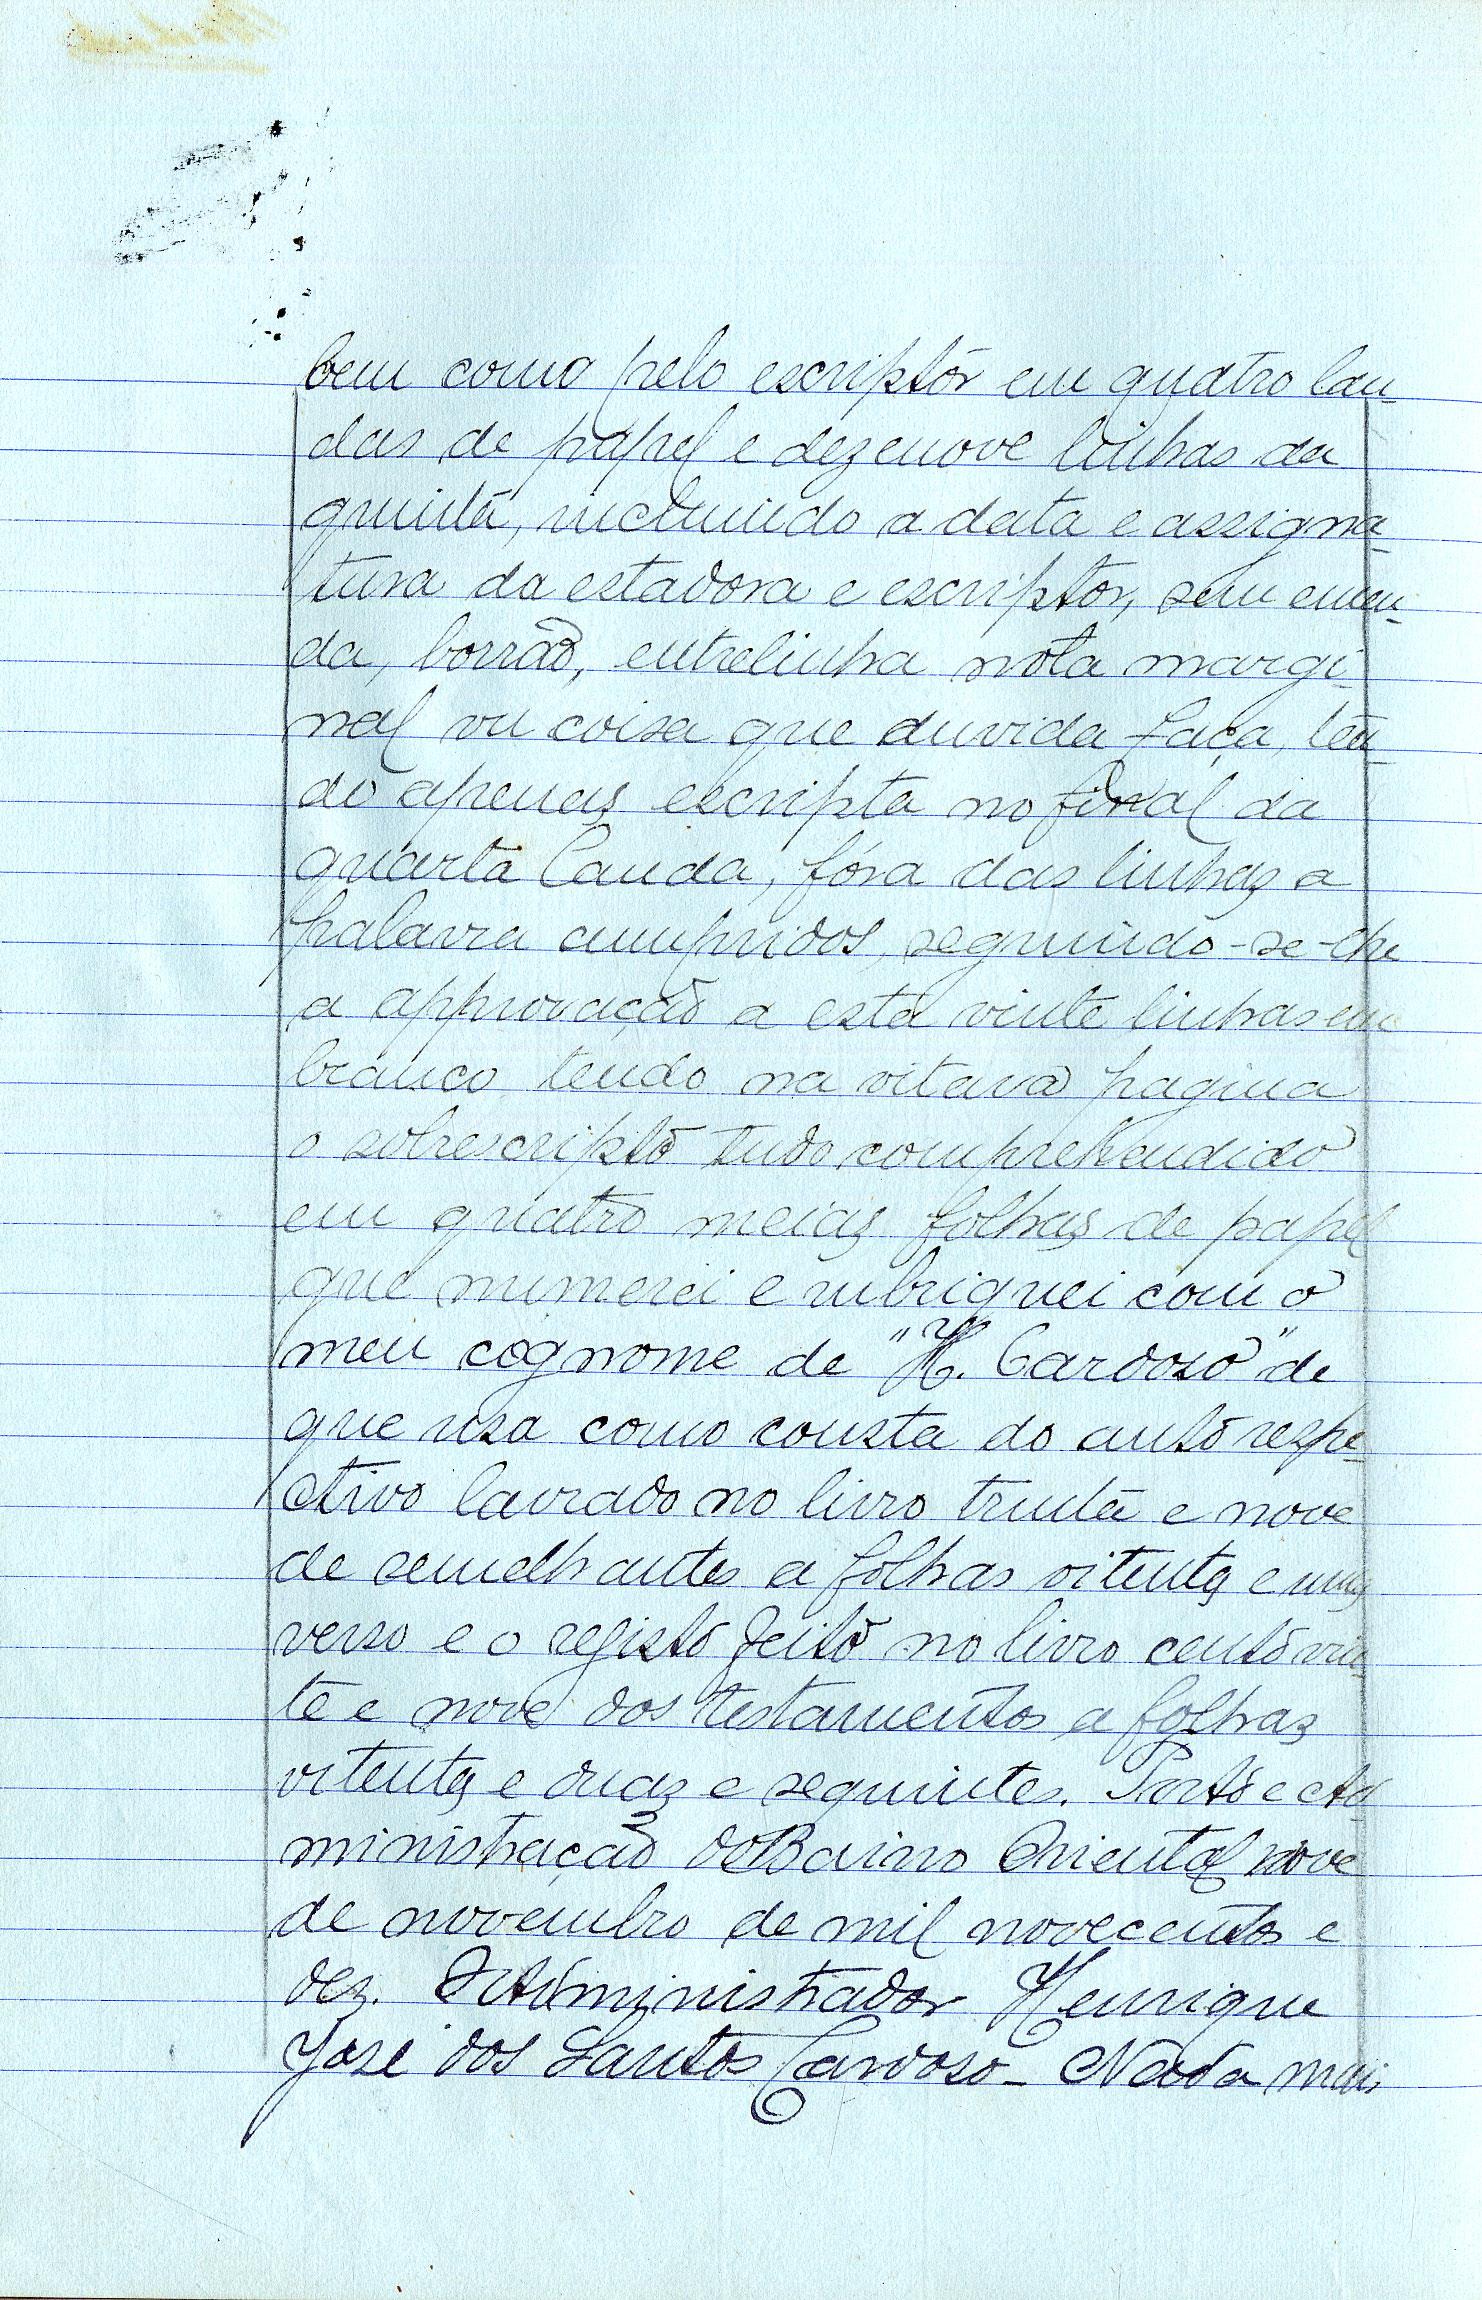 bem como pelo escriptor em quatro lau-
das de papel e dezenove linhas da
quinta, incluindo a data e assigna-
tura da estadora e escriptor, sem emen-
da, borrão, entrelinha nota margi-
nal ou coisa que duvida faça, ten-
do apenas escripta no final da
quarta lauda, fóra das linhas a
palavra cumpridos, seguindo-se-lhe
a approvação a esta vinte linhas em
branco tendo na oitava pagina
o sobrescripto tudo comprehendido
em quatro meias folhas de papel
que numerei e rubriquei com o
meu cognome de "H. Cardoso" de
que usa como consta do auto respe-
ctivo lavrado no livro trinta e nove
de semelhantes a folhas oitenta e uma
verso e o registo feito no livro cento vin-
te e nove dos testamentos a folhas
oitenta e duas e seguintes. Porto e Ad-
ministração do Bairro Oriental nove
de novembro de mil novecentos e
dez. O Administrador Henrique
José dos Santos Cardoso - Nada mais